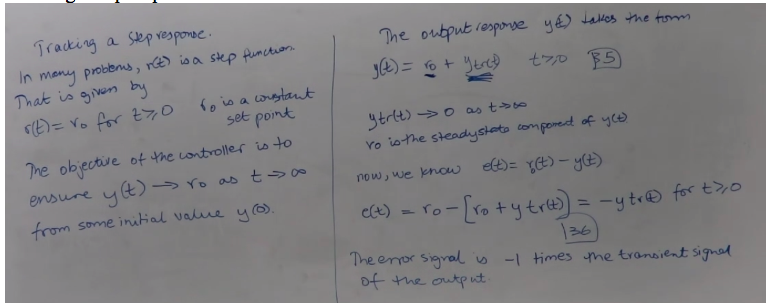 Tracking a step response.
In many problems, r(t) is a step function.
That is given by
r(t) = r₀ for t ≥ 0 r₀ is a constant
set point
The objective of the controller is to
ensure y(t) → r₀ as t → ∞
from some initial value y(0).
The output response y(t) takes the form
y(t) = r₀ + ytr(t) t ≥ 0 35
ytr(t) → 0 as t → ∞
r₀ is the steady state component of y(t)
now, we know e(t) = r(t) - y(t)
e(t) = r₀ - [r₀ + ytr(t)] = -ytr(t) for t ≥ 0
136
The error signal is -1 times the transient signal
of the output.